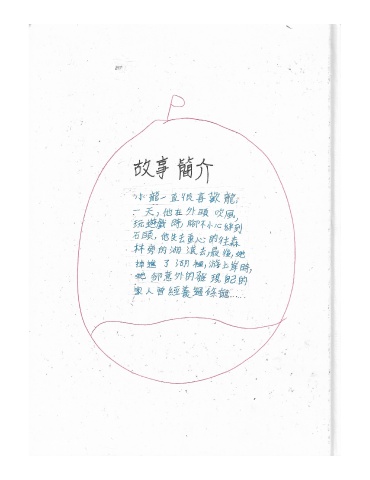 故事簡介
小龍一直很喜歡龍;
一天,他在外頭吹風,
玩遊戲時,腳不小心絆到
石頭,他失去重心的往森
林旁的湖滾去,最後,她
掉進了湖裡,游上岸時,
她卻意外的發現自己的
家人曾經養過條龍……